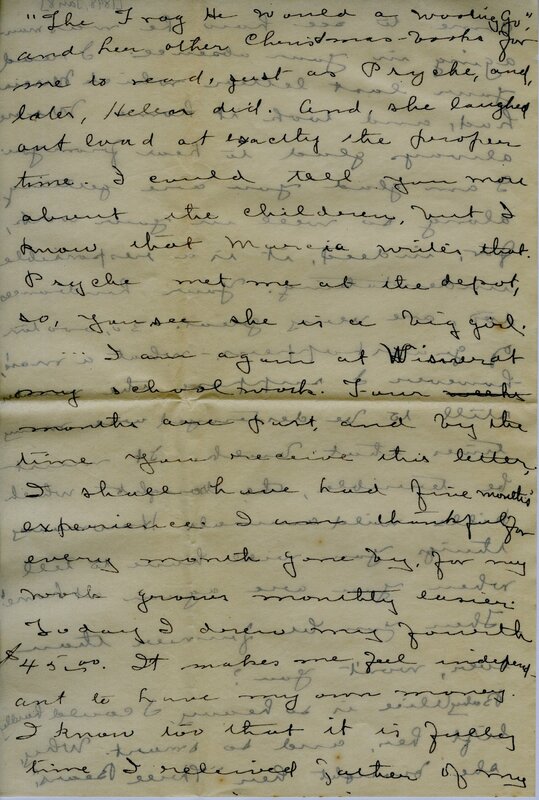 "The Frog He Would a Wooing Go,"
and her other Christmas-books for
me to read, just as Psyche, and,
later, Helen did. And, she laughed
out loud at exactly the proper
time. I could tell you more
about the children, but I
know that Marcia writes that.
Psyche met me at the depot,
so, you see she is a big girl.
I am again at Wisner at
my school work. Four weeks
months are past, and by the
time you receive this letter,
I shall have had five months'
experience. I am thankful for
every month gone by, for my
work grows monthly easier.
Today I drew my fourth
$45.00. It makes me feel independ-
ant to have my own money.
I know too that it is fully
time I relieved Father of my